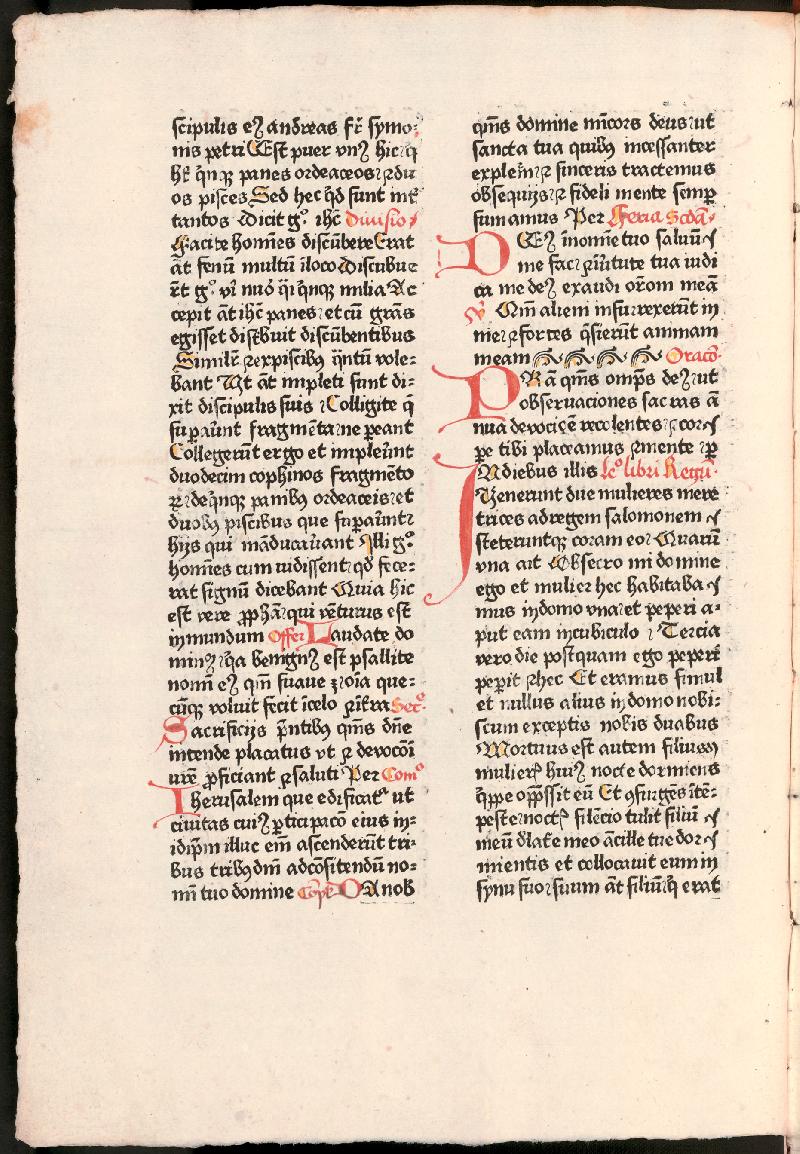 scipulis eꝫ andreas fr̄ symo⸗
nis petri Est puer vnꝰ hic q
hꝫ q̄nqꝫ panes ordeaceos ⁊ du
os pisces Sed hec qͥd sunt int̄
tantos Dicit gͦ ihc̄ diuisio
Facite homīes discūbere Erat
āt fenū multū ī loco Discubue
rūt gͦ viri nūo q̄si qͥnqꝫ milia Ac
cepit āt ihc̄ panes et cū grās
egisset distͥbuit discūbentibus
Simil̄r ⁊ ex piscibꝰ qͣntū vole⸗
bant Ut āt impleti sunt di⸗
xit discipulis suis Colligite q̄
supaūnt fragmēta ne peant
Collegerūt ergo et impleūnt
duodecim cophinos fragmēto
ꝝ de qͥnqꝫ panibꝰ ordeaceis et
duobꝰ piscibus que supaūnt
hijs qui māducaūant Illi gͦ
homīes cum vidissent qd̄ fece⸗
rat signū dicebant Quia hic
est vere ꝓph̄a qui vēturus est
in mundum Offer Laudate do
minū qͥa benignꝰ est psallite
nomīi eiꝰ qm̄ suaue ē oīa que⸗
cūqꝫ voluit fecit ī celo ⁊ ī tͥra Secͦ
Sacrificijs p̄ntibꝰ q̄ms dn̄e
intende placatus vt ⁊ deuocōi
nr̄e ꝓficiant ⁊ saluti Per Comͦ
Iherusalem que edificatᷣ ut
ciuitas cuiꝰ ꝑticipacō eius in⸗
idip̄m illuc em̄ ascenderūt tri⸗
bus tribꝰ dm̄ ad cōfitendū no⸗
mī tuo domine Cōpl̄ Da nob
q̄ms domine mīcors deus ut
sancta tua quibꝰ incessanter
explem̄r ⁊ sinceris tractemus
obsequijs ⁊ fideli mente semꝑ
sumamus Per Feria Scd̄a
DEus ī nomīe tuo saluū
me fac ⁊ ī v̄tute tua iudi
ca me deꝰ exaudi or̄om meā
℣ Qm̄ alieni insurrexerūt in
me ⁊ fortes q̄sierūt animam
meam Oracō
PRa q̄ms omp̄s deꝰ ut
obseruaciones sacras ā
nua deuocōe recolentes ⁊ cor⸗
pe tibi placeamus ⁊ mente ꝑ
In diebus illis lcͦ libri Regū
Uenerunt due mulieres mere
trices ad regem salomonem
steteruntqꝫ coram eo Quarū
vna ait Obsecro mi domine
ego et mulier hec habitaba
mus in domo vna et peperi a⸗
put eam in cubiculo Tercia
vero die postquam ego peperi
peperit ⁊ hec Et eramus simul
et nullus alius in domo nobi⸗
scum exceptis nobis duabus
Mortuus est autem filius
mulierꝭ huiꝰ nocte dormiens
q̄ppe oppssit eū Et ꝯsurgēs ītē⸗
peste noctꝭ silēcio tulit filiū
meū d̄ latꝭe meo ancille tue dor
mientis et collocauit eum in
synu suo suum āt filiū qͥ erat